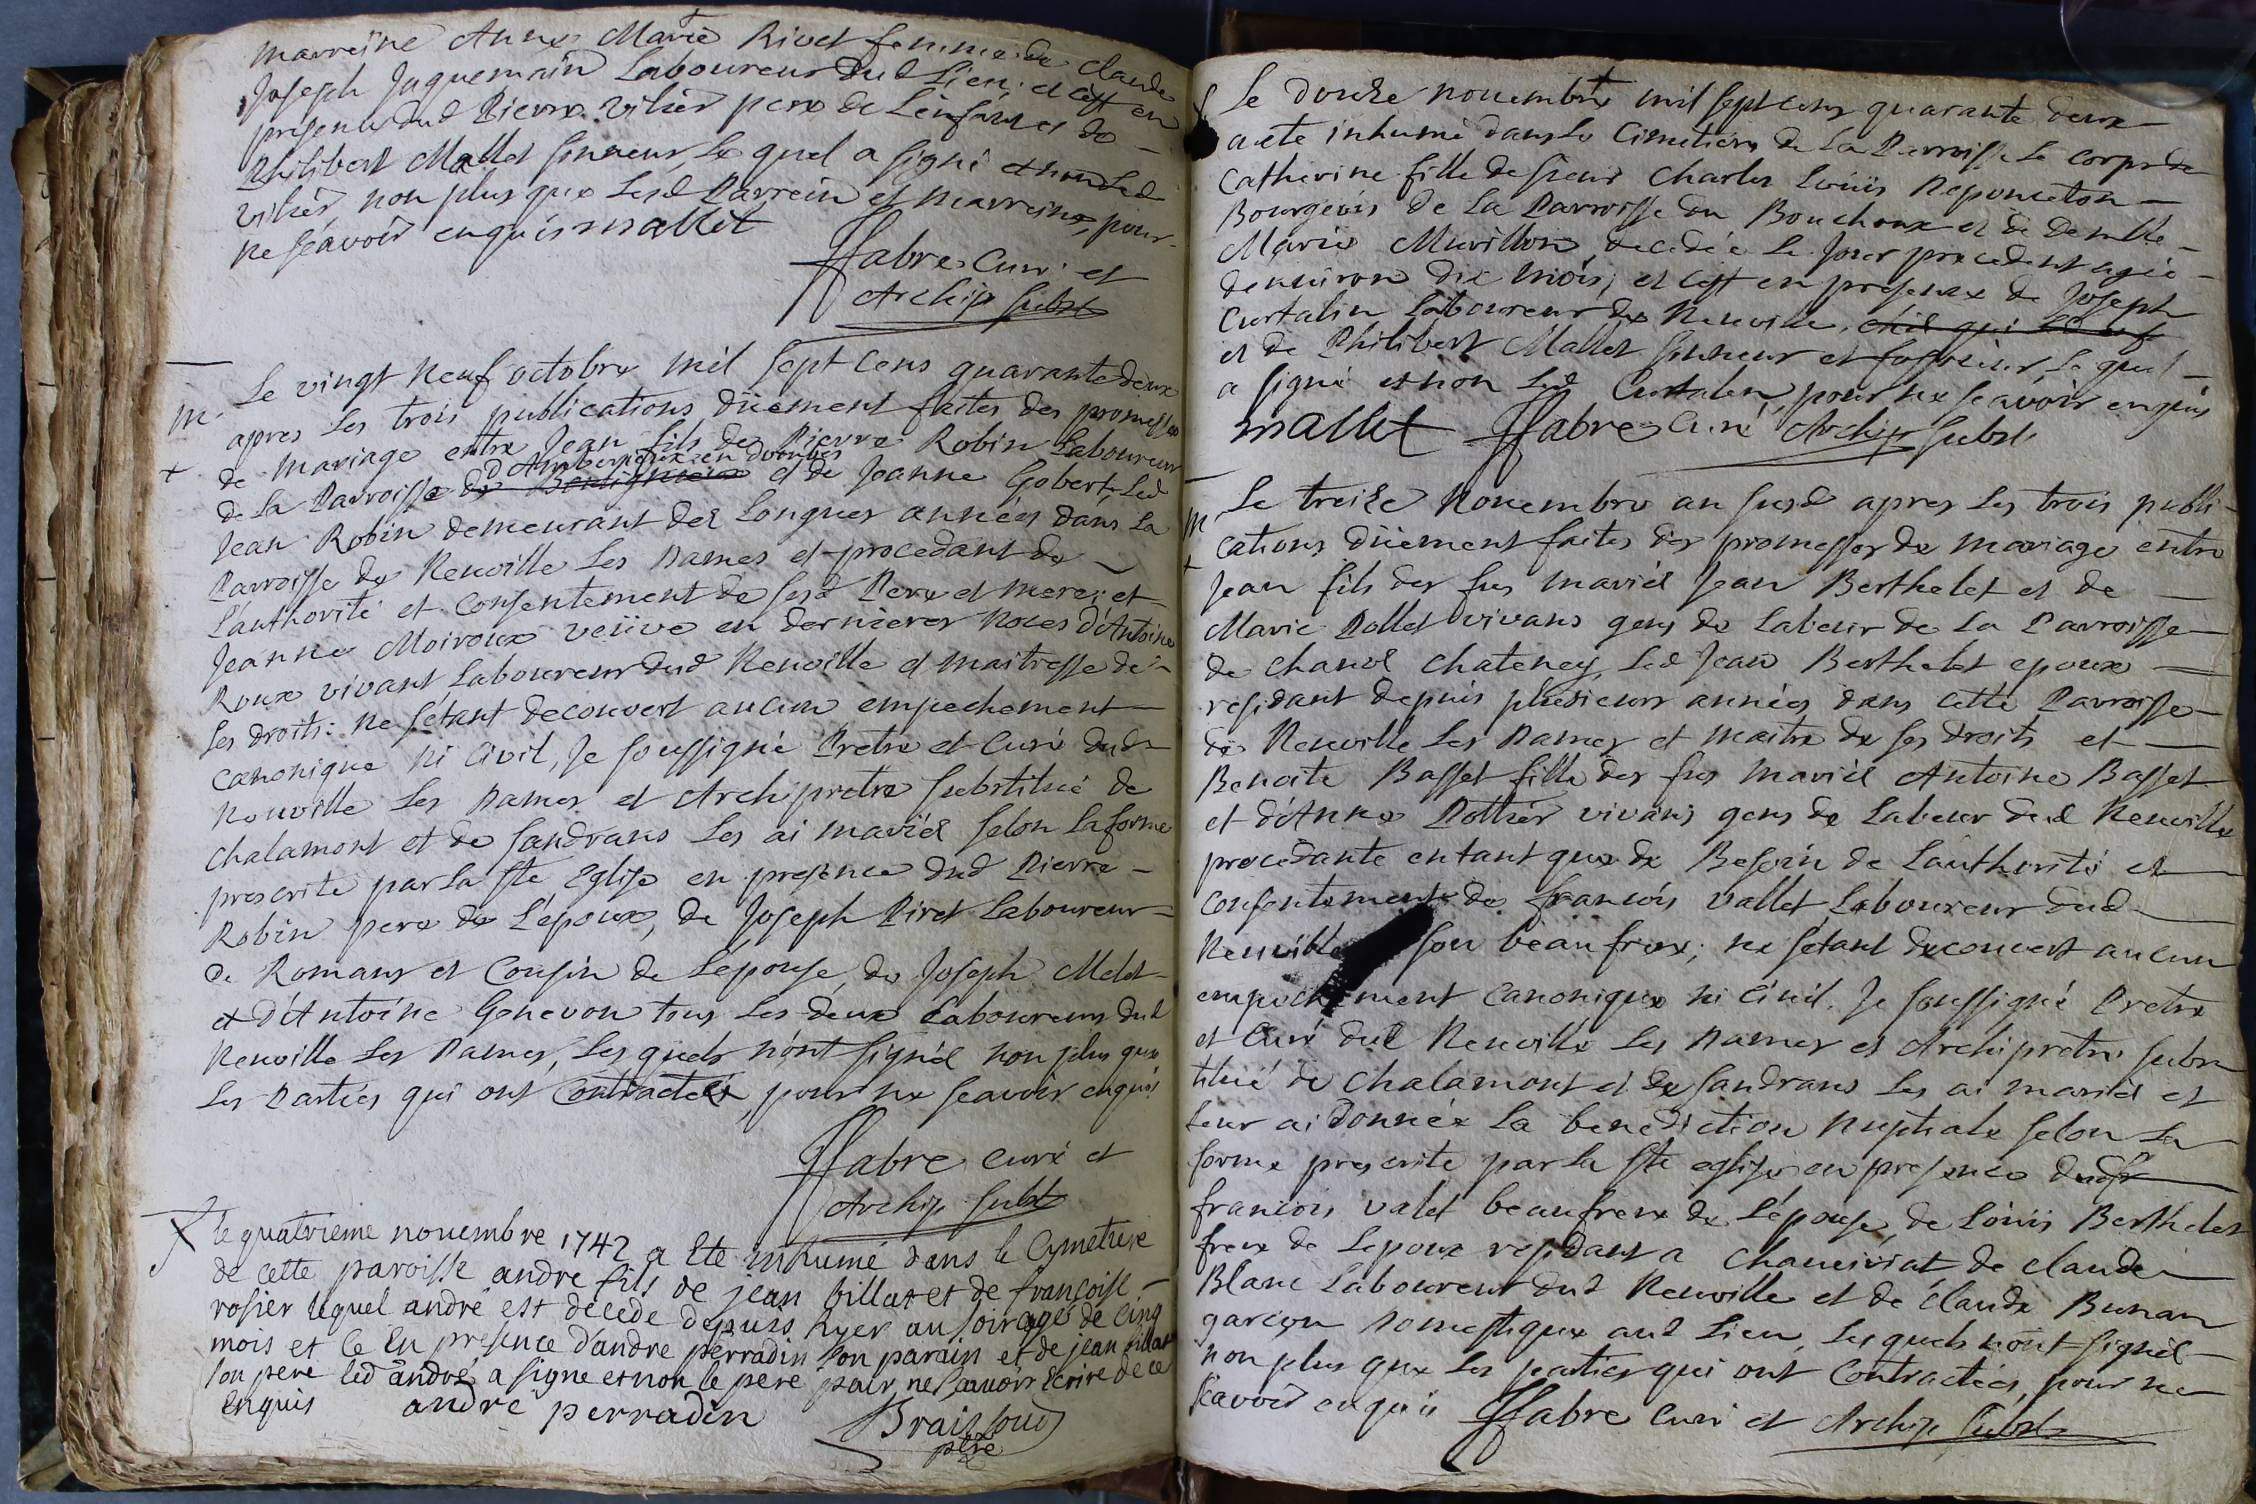 marreine Anne Marie Rivet femme de Claude
Joseph Jaquemain Laboureur dud Lieu. et cest en
presence dud Pierre vilier pere de Lenfant et de
Philibert Mallet sonneur, Le quel a signé et non led
vilier, non plus que Lesd Parrein et marreine, pour
ne scavoir enquis mallet
ffabre Curé et
Archip subst
Le vingt neuf octobre mil sept cens quarante deux
m. apres Les trois publications düement faites des promesses
+ de mariage entre Jean fils de Pierre Robin Laboureur
d'Amberieux en dombes
de La Parroisse de et de Jeanne Gobert, Led
Jean Robin demeurant des Longues années dans La
Parroisse de Neuville Les Dames et procedant de
L'authorité et Consentement de sesd Pere et mere; et
Jeanne Moiroux veüve en dernieres noces d'Antoine
Roux vivant Laboureur dud Neuville et maitresse de
ses droits: ne s'étant decouvert aucun empechement
canonique ni Civil, Je soussigné Pretre et Curé dud
Neuville Les Dames et Archipretre substitué de
Chalamont et de sandrans Les ai mariés selon La forme
prescrite par La ste Eglise en presence dud Pierre
Robin pere de L'époux, de Joseph Piret Laboureur
de Romans et Cousin de Lepouse, de Joseph Melet
et d'Antoine Genevon tous Les deux Laboureurs dud
Neuville Les Dames, Les quels n'ont signés non plus que
Les Parties qui ont Contractés, pour ne scavoir enquis
ffabre curé et
Archip subst
le quatrieme novembre 1742 a ete inhumé dans le Cymetiere
de cette paroisse andre fils de jean billat et de francoise
rosier lequel andré est décédé depuis hyer au soir agé de cinq
mois et ce En presence d'andre perradin son parain et de jean billat
son pere led andré a signe et non le pere pour ne scavoir Ecrire de ce
Enquis andré perradin
ptre
Le douze novembre mil sept cens quarante deux
a eté inhumé dans Le Cimetiere de La Parroisse Le corps de
Catherine fille de sieur Charles Loüis Reponceton
Bourgeois de La Parroisse du Bouchoux et de Demlle
Marie Muvillon decedée Le Jour precedent agée
denviron dix mois, et cest en presence de Joseph
Curtalin Laboureur de Neuville,
et de Philibert Mallet sonneur et fossoieur, Le quel
a signé et non Led Curtalin, pour ne scavoir enquis
mallet ffabre Curé Archip subst
Le treize Novembre an susd apres Les trois publi-
m cations düement faites des promesses de mariage entre
+ Jean fils des fus mariés Jean Berthelet et de
Marie Pollet vivans gens de Labeur de La Parroisse
de Chanoz Chateney, Led Jean Berthelet epoux
residant depuis plusieurs années dans cette Parroisse
de Neuville Les Dames et maitre de ses droits et
Benoite Basset fille des fus mariés Antoine Basset
et d'Anne Pottier vivans gens de Labeur dud Neuville
procedante entant que de Besoin de L'authorité et
consentement de francois vallet Laboureur dud
Neuville son beaufrere; ne sétant decouvert aucun
empechement canonique ni civil. Je soussigné Pretre
et Curé dud Neuville Les Dames et Archipretre subs-
titué de Chalamont et de sandrans Les ai mariés et
Leur ai donnée La benediction nuptiale selon La
forme prescrite par La ste eglise en presence dud
francois valet beaufrere de L'épouse, de Loüis Berthelet
frere de Lepoux residant a Chaneiviat de claude
Blanc Laboureur dud Neuville et de Claude Bunan
garçon Domestique aud Lieu, Les quels n'ont signés
non plus que Les parties qui ont Contractées, pour ne
scavoir enquis ffabre Curé et Archip subst